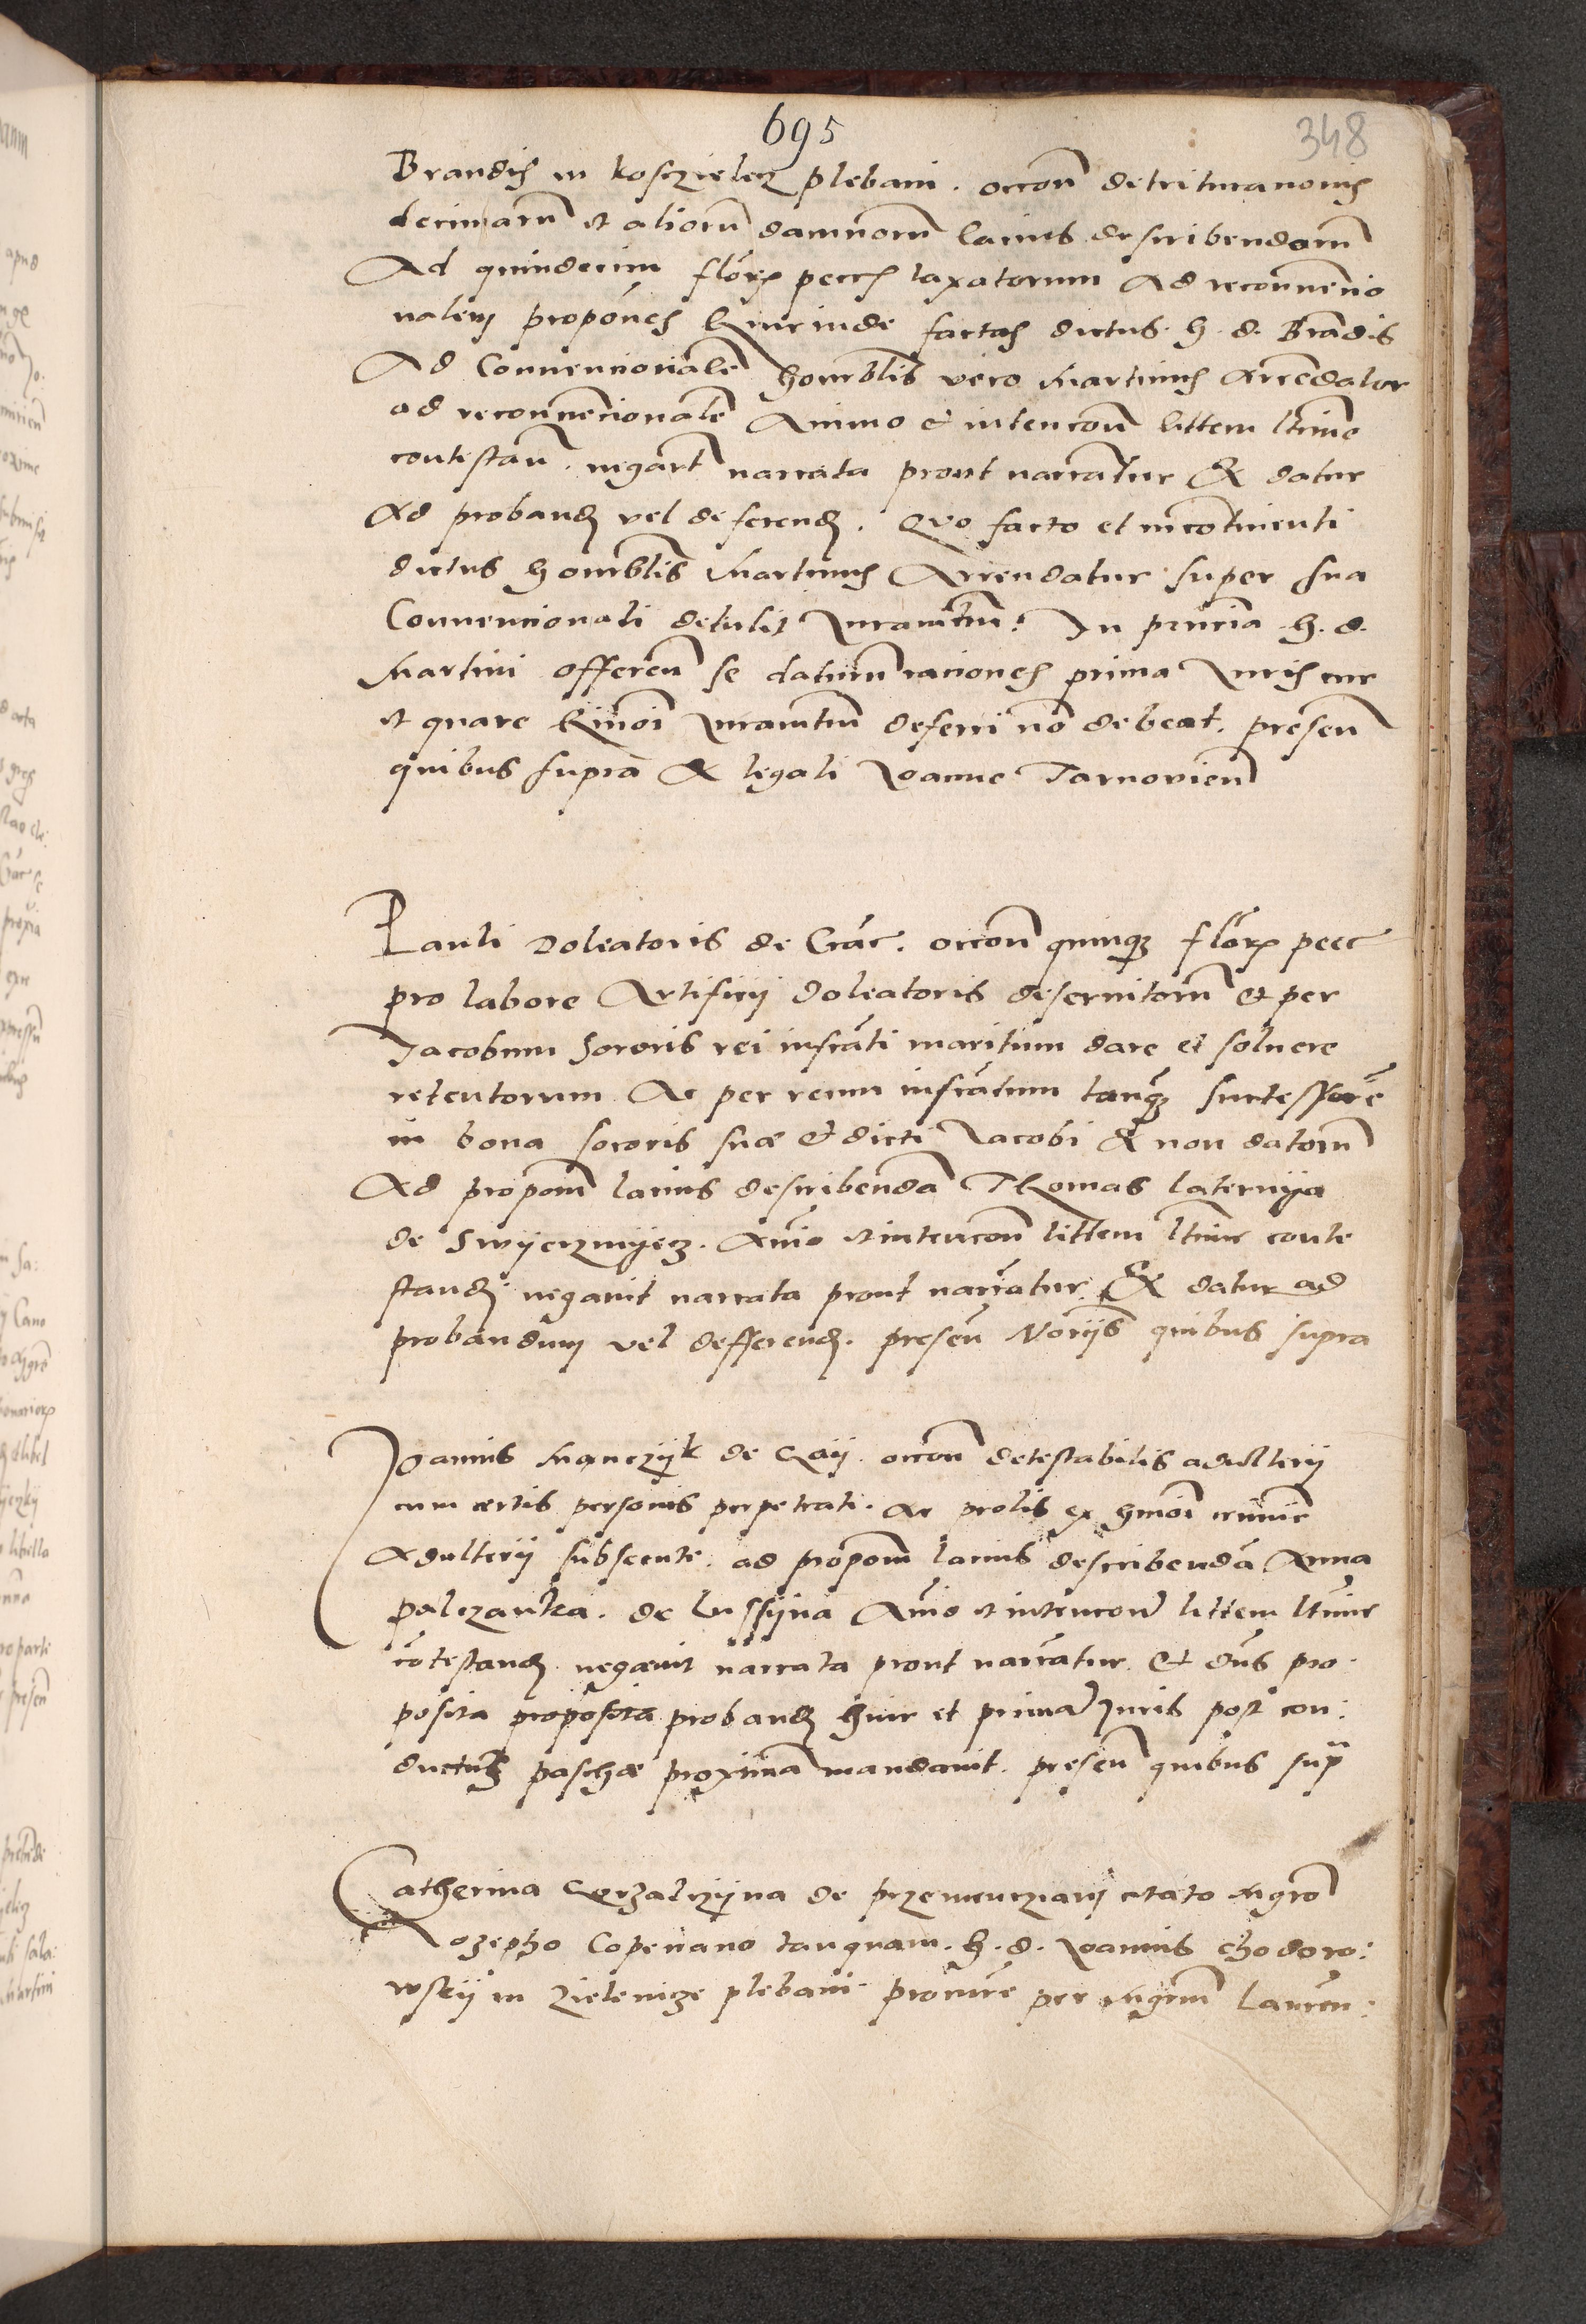 695
348
Brandis in kosczielecz plebani. occōn detrituranonis
decimarū et aliorū damnorū lacius describendorū
Ad quindecim flōrꝫ peccs taxatorum Ad reconnencio
nalem propōnes hincinde factas dictus. h. d. Brādis
Ad Conuencionalē honorblis vero Martinus Arrēdator
ad reconnēcionalē Animo et intencōn littem ltime
contestan. negart narrata prout narratur Et datur
Ad probandꝫ vel deferendꝫ. Quo facto et incōtinenti
dictus honorblis Martinus Arrendator super sua
Conuencionali detulit Juramtum. In pntia h. d.
Martini offeren se daturū raciones prima Juris cur
et quare hmoi Juramtum deferri nō debeat. presen
quibus supra et legali Joanne Tarnowien
Pauli Doleatoris de Crac. occōn quinqꝫ flōrꝫ pecc
pro labore Artificij doleatoris deseruitorū et per
Jacobum Sororis rei infrati maritum dare et soluere
retentorum Ac per reum infratum tanqꝫ succesforē
in bona sororis suæ et dicti Jacobi et non datorū
Ad propom lacius describendā Thomas laternija
de Swijerzmijecz. Aīo et intencōn littem ltime conte
standꝫ negauit narrata prout narratur Et datur ad
probandum vel defferendꝫ. presen Noriis quibus supra
Joannis Manczijk de occōn detestabilis adulterij
cum certis personis perpetrati. Ac prolis ex hmoi crimine
Adulterij subsecute. ad propom lacius describendā Anna
palczanka. de lussijna Aīo et intencōn littem ltime
cōtestandꝫ negauit narrata prout narratur. Et dns pro
posita proposita probandꝫ huic et prima Juris post con:
ductus paschæ proxima mandauit. presen quibus supra
Catherina de przemenczani citato Mgro
Jozepho Copenano tanquam. h. d. Joannis chodoro:
wskij in Zielenicze plebani procure per Mgrm Lauren: